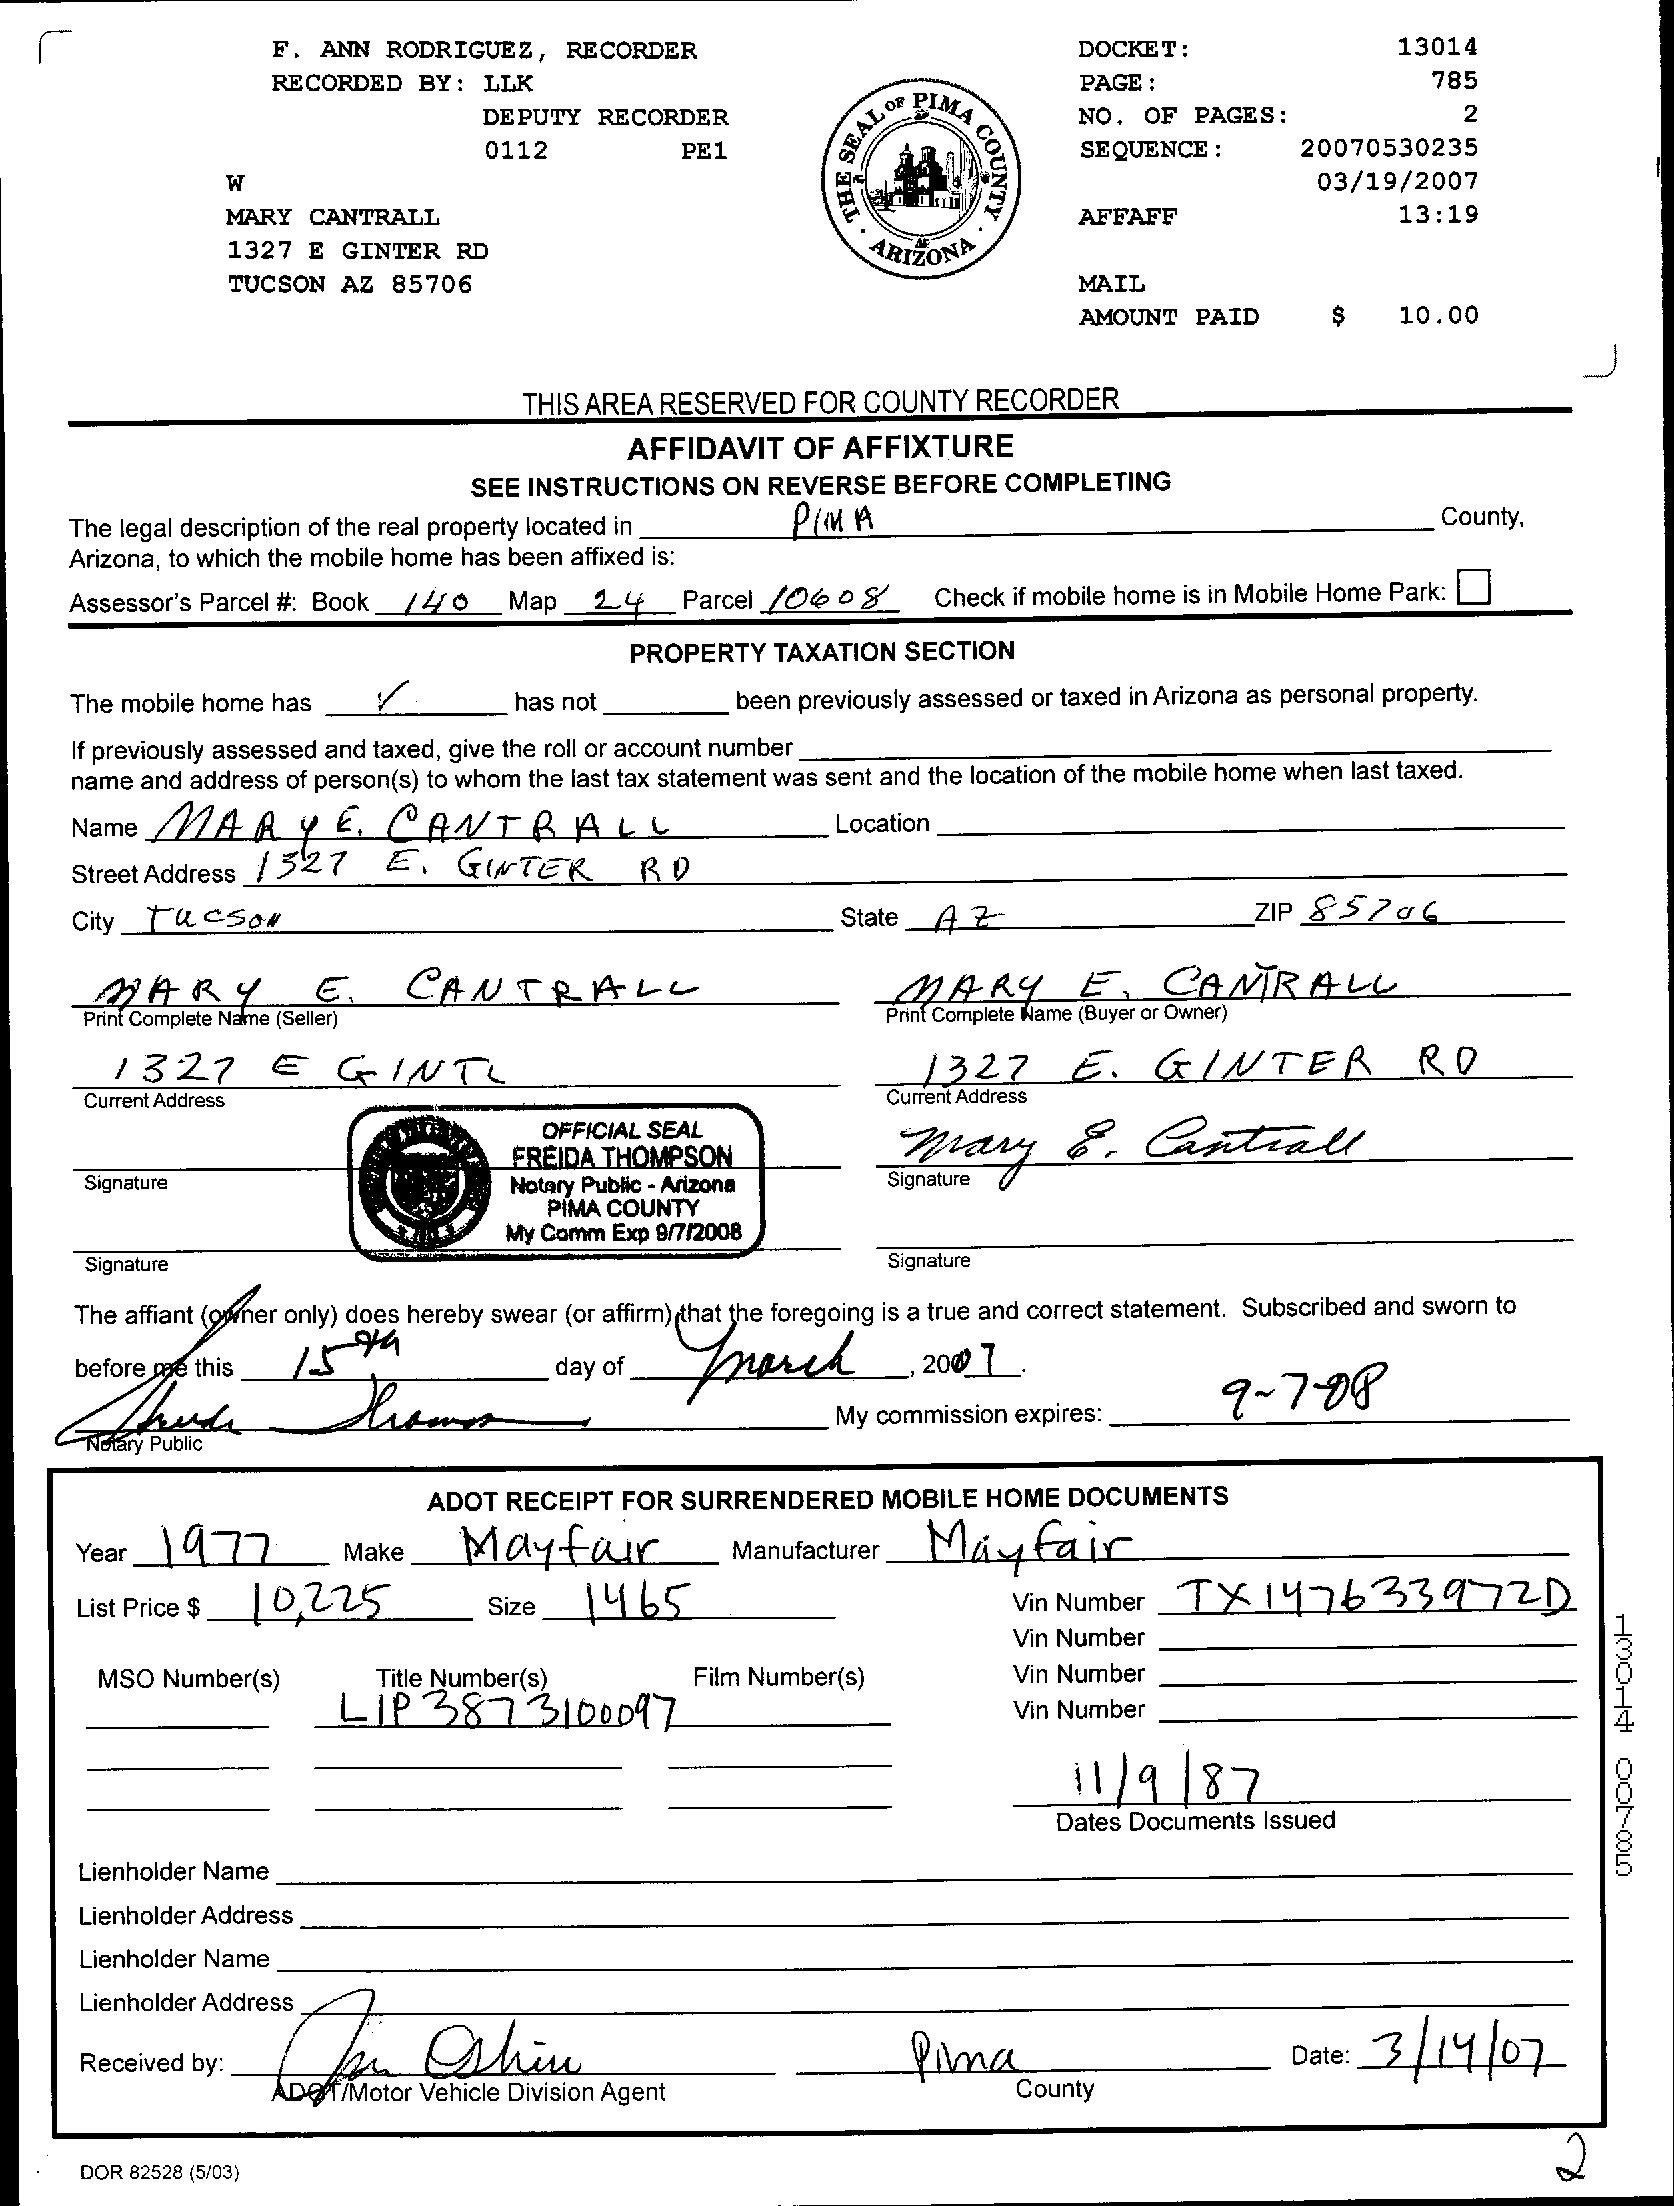 F. ANN RODRIGUEZ, RECORDER
RECORDED BY: LLK
DEPUTY RECORDER
0112 PE1
W
MARY CANTRALL
1327 E GINTER RD
TUCSON AZ 85706
THE SEAL OF PIMA COUNTY
ARIZONA
DOCKET: 13014
PAGE: 785
NO. OF PAGES: 2
SEQUENCE: 20070530235
03/19/2007
AFFAFF 13:19
MAIL
AMOUNT PAID $ 10.00
THIS AREA RESERVED FOR COUNTY RECORDER
AFFIDAVIT OF AFFIXTURE
SEE INSTRUCTIONS ON REVERSE BEFORE COMPLETING
The legal description of the real property located in PIMA County,
Arizona, to which the mobile home has been affixed is:
Assessor's Parcel #: Book 140 Map 24 Parcel 10608 Check if mobile home is in Mobile Home Park:
PROPERTY TAXATION SECTION
The mobile home has ✓ has not been previously assessed or taxed in Arizona as personal property.
If previously assessed and taxed, give the roll or account number
name and address of person(s) to whom the last tax statement was sent and the location of the mobile home when last taxed.
Name MARY E. CANTRALL Location
Street Address 1327 E. GINTER RD
City Tucson State AZ ZIP 85706
MARY E. CANTRALL MARY E. CANTRALL
Print Complete Name (Seller) Print Complete Name (Buyer or Owner)
1327 E GINTL 1327 E. GINTER RD
Current Address Current Address
OFFICIAL SEAL
FREIDA THOMPSON
Notary Public - Arizona
PIMA COUNTY
My Comm Exp 9/7/2008
Mary E. Cantrall
Signature Signature
Signature Signature
The affiant (owner only) does hereby swear (or affirm) that the foregoing is a true and correct statement. Subscribed and sworn to
before me this 15th day of March, 2007.
My commission expires: 9-7-08
Notary Public
ADOT RECEIPT FOR SURRENDERED MOBILE HOME DOCUMENTS
Year 1977 Make Mayfair Manufacturer Mayfair
List Price $ 10,225 Size 1465 Vin Number TX147633972D
Vin Number
MSO Number(s) Title Number(s) Film Number(s) Vin Number
LIP3873100097 Vin Number
11/9/87
Dates Documents Issued
Lienholder Name
Lienholder Address
Lienholder Name
Lienholder Address
Received by: Pima Date: 3/14/07
ADOT/Motor Vehicle Division Agent County
13014 00785
DOR 82528 (5/03)
2